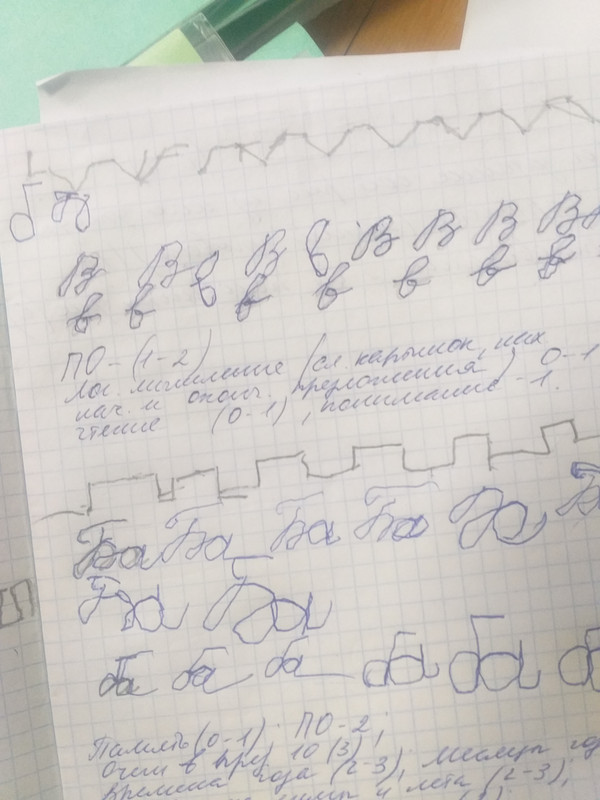 б В
В В в В в В В В В
в в в в в в в в в
ПО - (1-2)
Лог. мышление (сл. картинок, них
нач. и оконч. предложения) 0-1
чтение (0-1), понимание -1.
Ба Ба Ба Ба Ба Б
Ба Ба
ба ба ба ба ба б
Память (0-1); ПО-2;
Счет в пред. 10 (3);
времена года (2-3); месяцы го
зимы и лета (2-3);